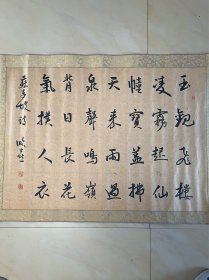 玉観飛樓
凌霧起仙
幢寶蓋拂
天來雨過
泉聲鳴嶺
背日長花
氣撲人衣
蘇東坡詩